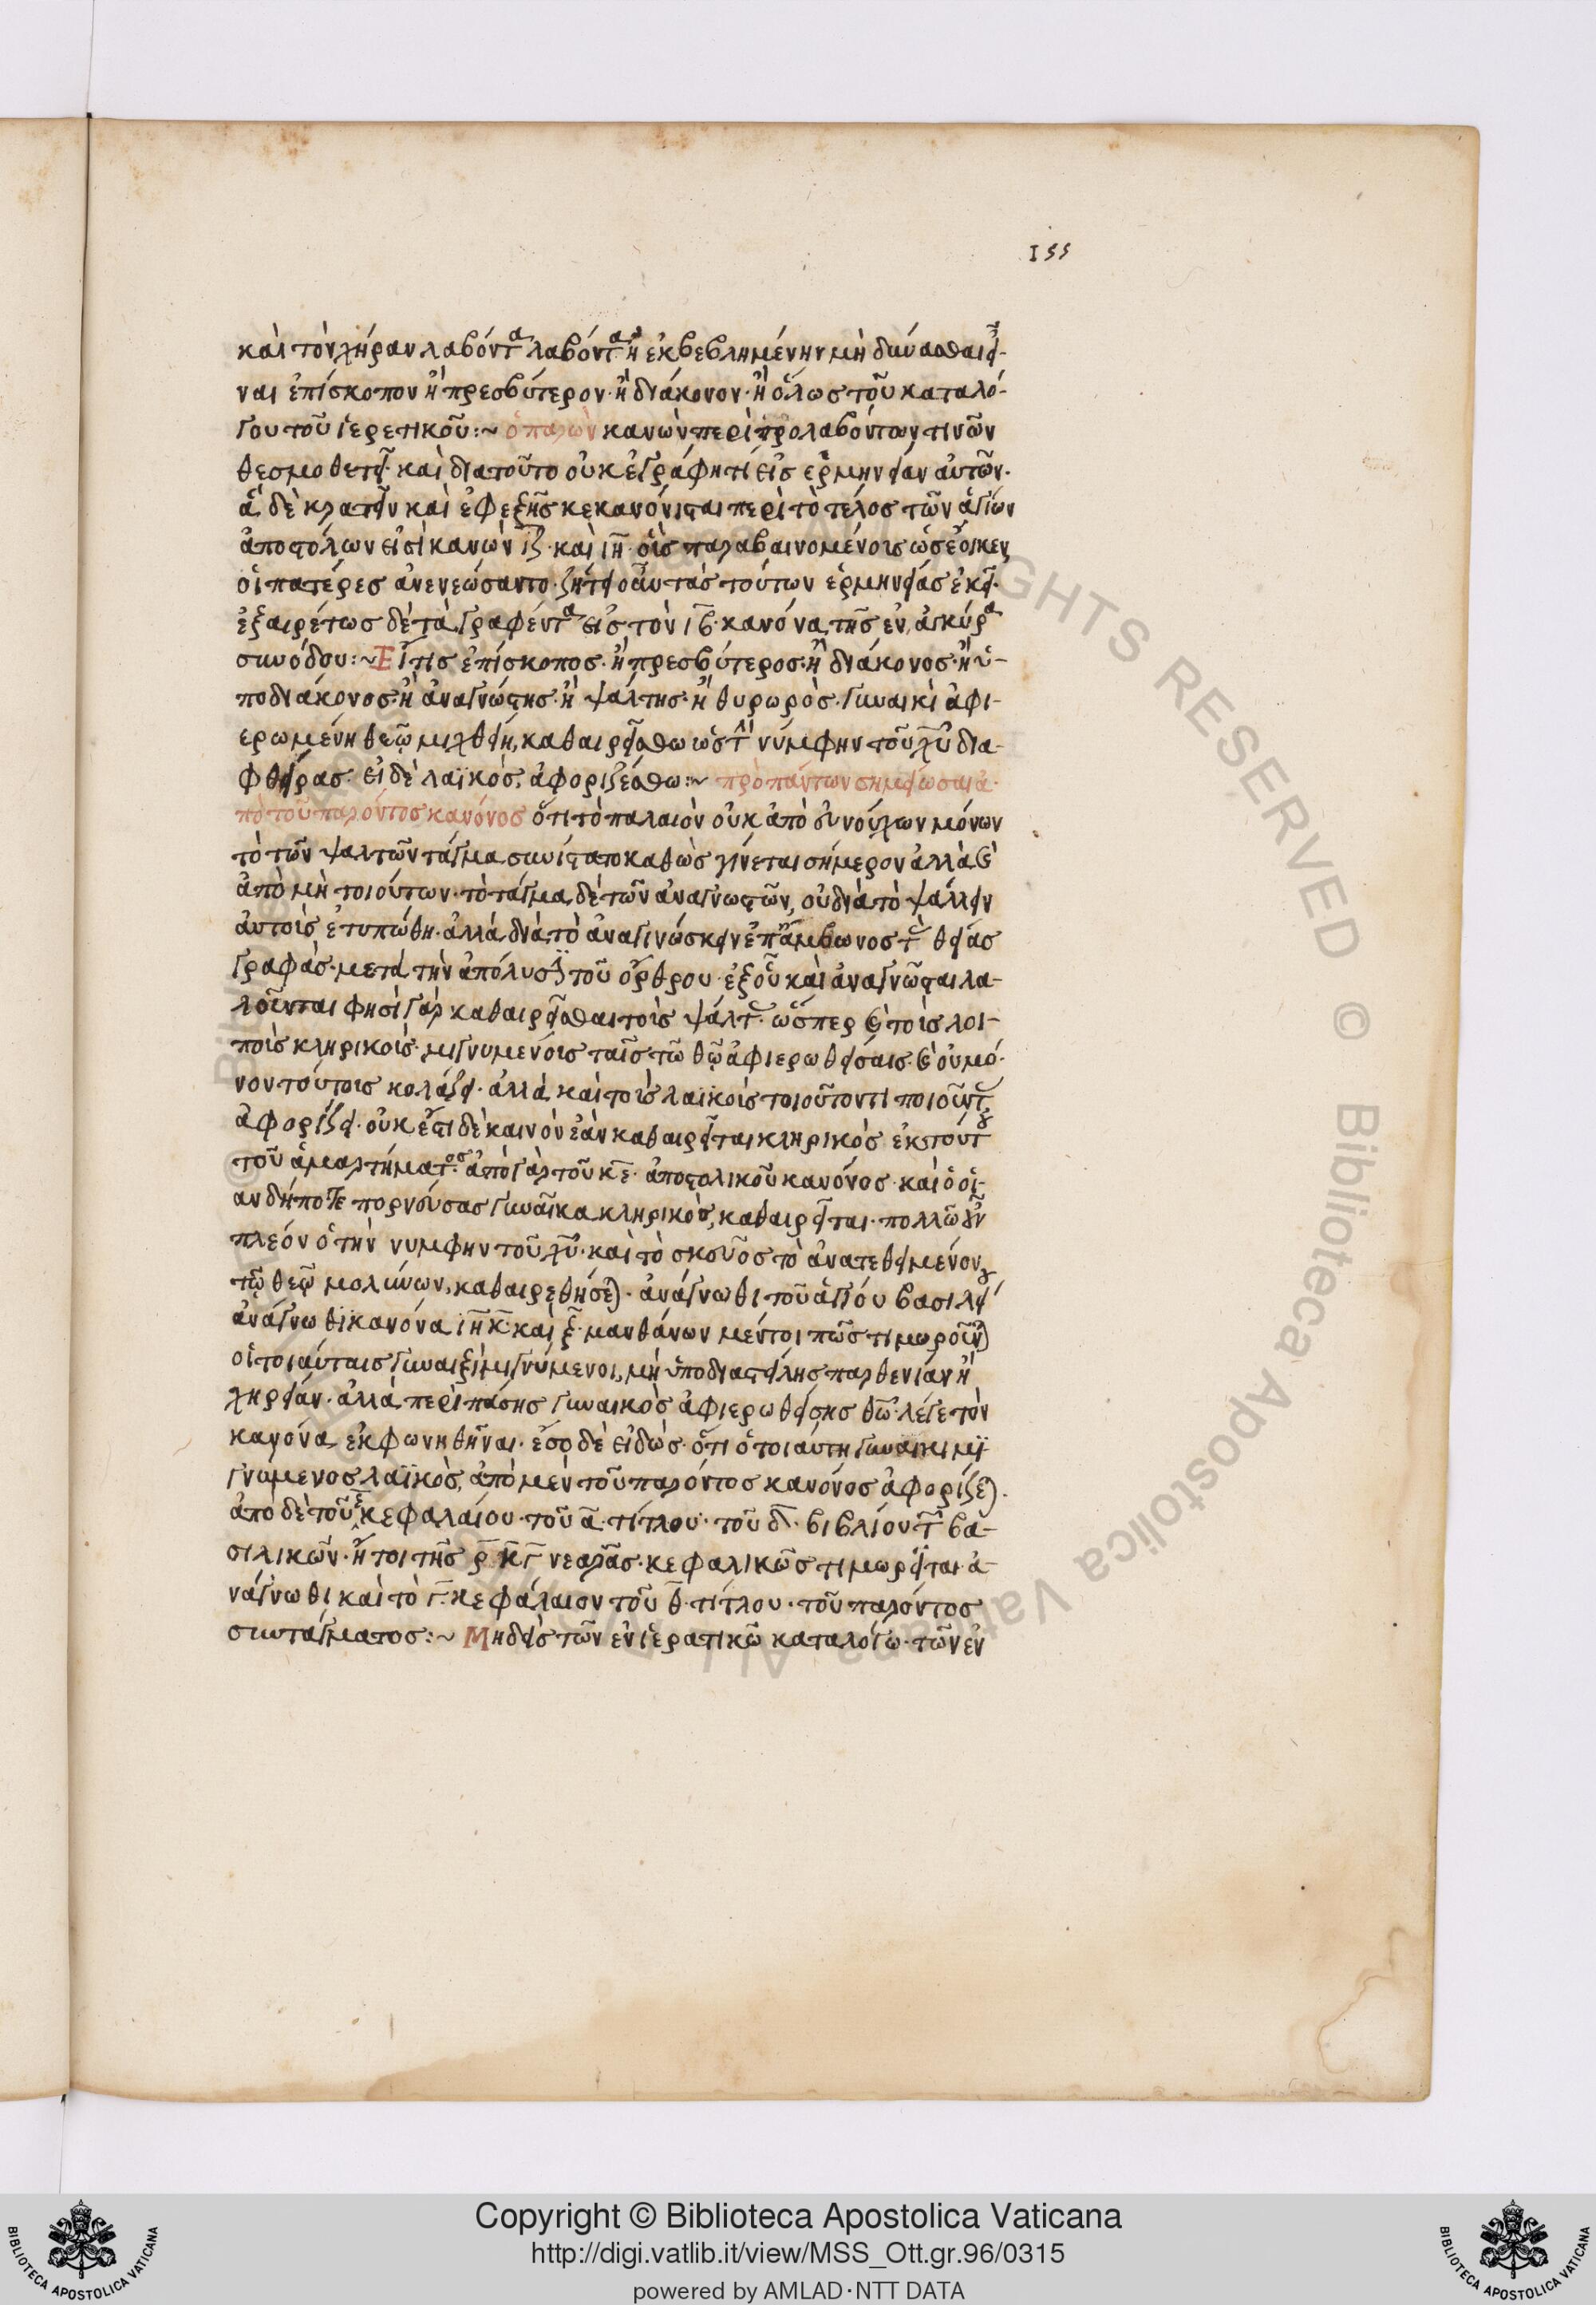 155
καὶ τὸν χήραν λαβόντα λαβόντα ἢ ἐκβεβλημένην μὴ δύνασθαι εἶ-
ναι ἐπίσκοπον ἢ πρεσβύτερον· ἢ διάκονον· ἢ ὅλως τοῦ καταλό-
γου τοῦ ἱερετικοῦ:~ ὁ παρὼν κανὼν περὶ προλαβόντων τινῶν
θεσμοθετεῖ· καὶ διατοῦτο οὐκ ἐγράφη τί εἰς ἑρμηνείαν αὐτῶν·
ἃ δὲ κρατεῖν καὶ ἐφεξῆς κεκανόνισται περὶ τὸ τέλος τῶν ἁγίων
ἀποστόλων εἰσὶ κανὼν ιζ· καὶ ιη· οἷς παραβαινομένοις ὡς ἔοικεν
οἱ πατέρες ἀνενεώσαντο· ζήτει οὖν τὰς τούτων ἑρμηνείας ἐκεῖ·
ἐξαιρέτως δὲ τὰ γραφέντα εἰς τὸν ιβ· κανόνα τῆς ἐν ἀγκύρα
συνόδου:~ Εἴτις ἐπίσκοπος· ἢ πρεσβύτερος· ἢ διάκονος· ἢ ὑ-
ποδιάκονος· ἢ ἀναγνώστης· ἢ ψάλτης· ἢ θυρωρὸς· γυναικὶ ἀφι-
ερωμένη θεῷ μιχθείη, καθαιρείσθω ὡς τὴν νύμφην τοῦ χυ δια-
φθείρας· εἰ δὲ λαϊκός, ἀφοριζέσθω:~ πρὸ πάντων σημείωσαι ἀ-
πὸ τοῦ παρόντος κανόνος ὅτι τὸ παλαιὸν οὐκ ἀπὸ εὐνούχων μόνων
τὸ τῶν ψαλτῶν τάγμα συνίστατο καθὼς γίνεται σήμερον ἀλλὰ καὶ
ἀπὸ μὴ τοιούτων· τὸ τάγμα δὲ τῶν ἀναγνωστῶν, οὐ διὰ τὸ ψάλλειν
αὐτοὶς ἐτυπώθη· ἀλλὰ διὰ τὸ ἀναγινώσκειν ἐπ' ἄμβωνος τὰς θείας
γραφὰς· μετὰ τὴν ἀπόλυσιν τοῦ ὄρθρου· ἐξ οὗ καὶ ἀναγνῶσται λα-
λοῦνται φησὶ γὰρ καθαιρεῖσθαι τοὶς ψάλταις· ὥσπερ καὶ τοὶς λοι-
ποὶς κληρικοὶς· μιγνυμένοις ταῖς τῶ θῷ ἀφιερωθείσαις· καὶ οὐ μό-
νον τούτοις κολάζει· ἀλλὰ καὶ τοὶς λαϊκοὶς τοιοῦτον τι ποιοῦντας
ἀφορίζει· οὐκ ἔστι δὲ καινὸν ἐὰν καθαιρεῖται κληρικὸς ἐκ τούτου
τοῦ ἁμαρτήματος· ἀπὸ γὰρ τοῦ κε· ἀποστολικοῦ κανόνος· καὶ ὁ οἱ-
ανδήποτε πορνεύσας γυναῖκα κληρικὸς, καθαιρεῖται· πολλῶ οὖν
πλεόν ὁ τὴν νυμφην τοῦ χυ· καὶ τὸ σκεῦος τὸ ἀνατεθειμένον
τῷ θεῷ μολύνων, καθαιρεθήσεται· ἀνάγνωθι τοῦ ἁγίου βασιλείου
ἀνάγνωθι κανόνα ιη κ· καὶ ξ· μανθάνων μέντοι πῶς τιμωροῦνται
οἱ τοιαύταις γυναιξὶ μιγνύμενοι, μὴ ὑποδιαστείλης παρθενίαν ἢ
χηρείαν· ἀλλὰ περὶ πάσης γυναικὸς ἀφιερωθείσης θῶ· λέγε τὸν
κανόνα ἐκφωνηθῆναι· ἔσο δὲ εἰδὼς· ὅτι ὁ τοιαύτη γυναικὶ μι
γνυμενος λαϊκὸς, ἀπὸ μὲν τοῦ παρόντος κανόνος ἀφορίζεται·
ἀπο δὲ τοῦ ξ κεφαλαίου· τοῦ α· τίτλου· τοῦ δ· βιβλίου τῶν βα-
σιλικῶν· ἤτοι τῆς ρκγ νεαρᾶς· κεφαλικῶς τιμωρεῖται· ἀ-
νάγνωθι καὶ τὸ γ· κεφάλαιον τοῦ θ· τίτλου· τοῦ παρόντος
συντάγματος:~ Μηδεὶς τῶν ἐν ἱερατικῶ καταλόγω· τῶν ἐν
Copyright © Biblioteca Apostolica Vaticana
http://digi.vatlib.it/view/MSS_Ott.gr.96/0315
powered by AMLAD·NTT DATA